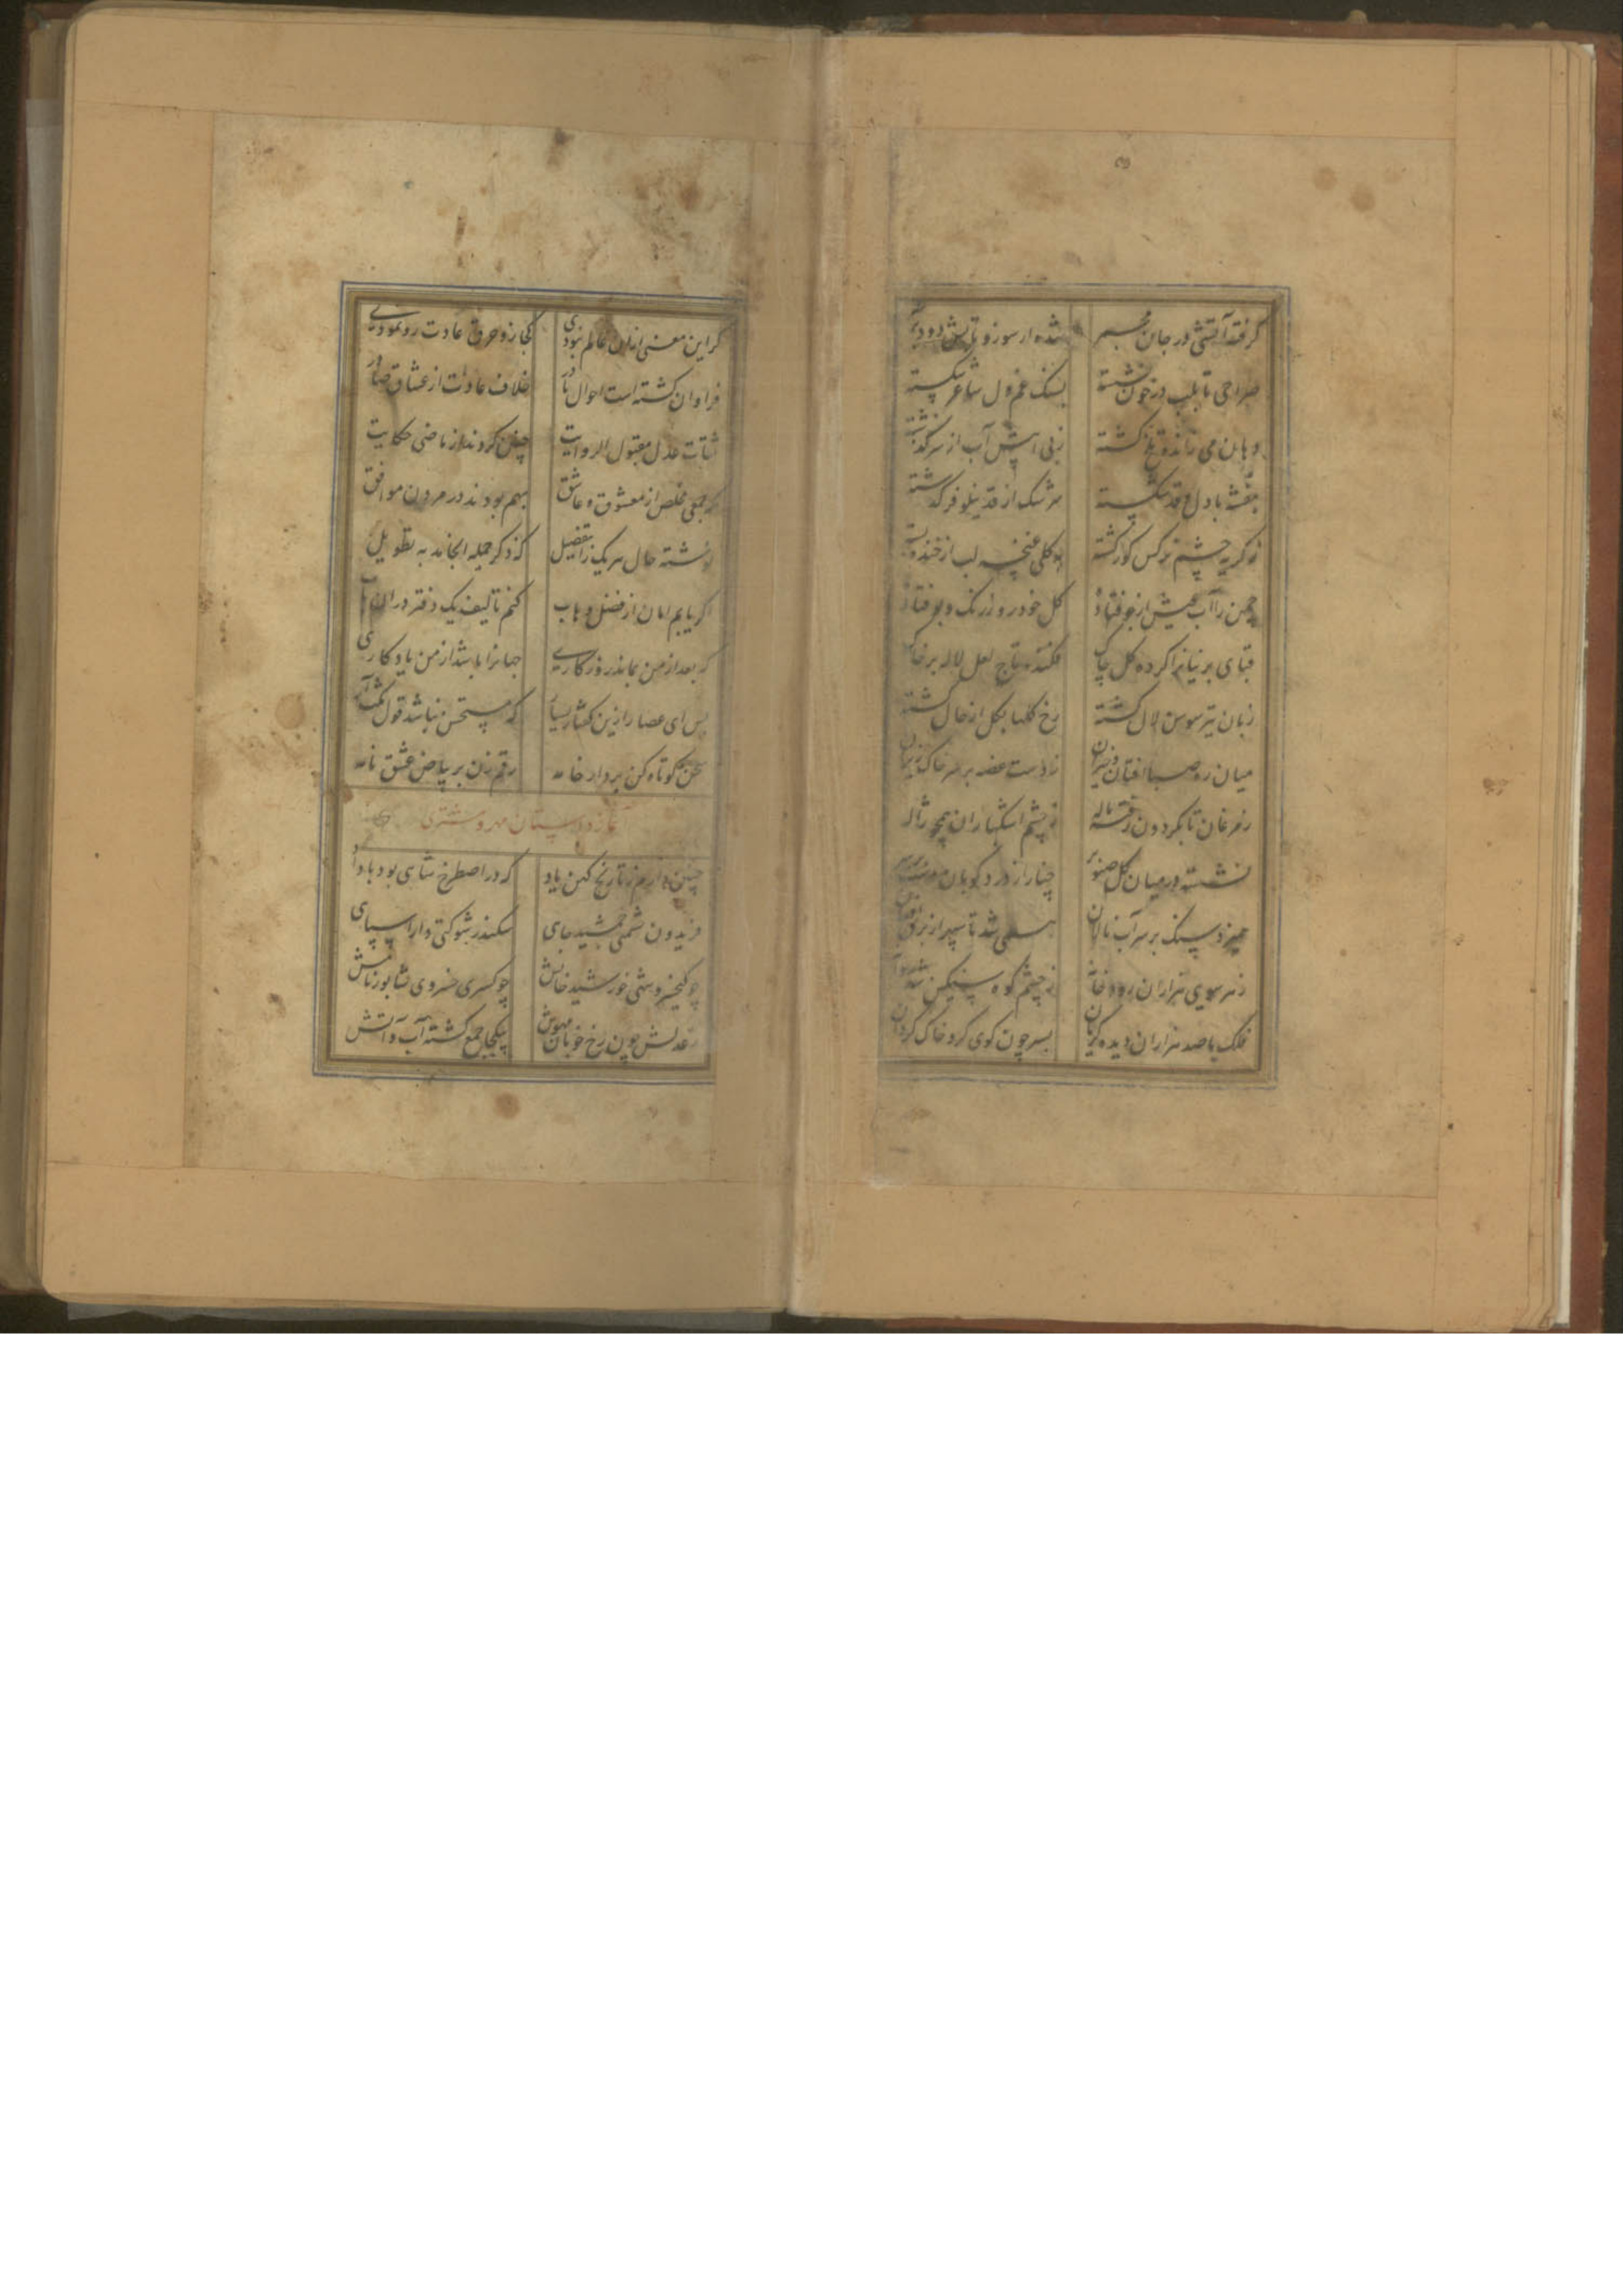 گرفته آتشی در جان مجمر شده از سوز و تابش دود بر
صراحی تا بلب در خون نشسته بسنگ غم دل ساغر شکسته
دهان می زاندوه تلخ گشته زبی آبیش آب از سرگذشته
بنفشه با دل و قد شکسته سرشک از قد نیلوفر گذشته
ز گریه چشم نرگس کور گشته لب از خنده
چمن را آب عیش از جو فتاده گل خودرو ز رنگ و بو فتاده
قبای پرنیانرا کرده گل چاک فکنده تاج لعل لاله بر خاک
زبان تیز سوسن لال گشته رخ گلها بکل از حال گشته
میان ره صبا افتان و خیزان ز دست غصه بر سر خاک ریزان
ز مرغان تا بگردون رفته ناله ز چشم اشکباران همچو ژاله
نشسته در میان گل صنوبر چنار از درد کوبان دست بر سر
همیزد سنگ بر سر آب نالان همی شد تا سپهر از برق
ز هر سوی هزاران رودخانه ز چشم کوه سنگین شد روانه
فلک با صد هزاران دیده گریان بسر چون گوی گرد خاک گردان
گر این معنی ازان عالم نبودی کجا زو خرق عادت رو نمودی
فراوان گشته است احوال نادر خلاف عادت از عشاق صادر
ثقات عدل مقبول الروایت چنین کردند از ماضی حکایت
که جمعی مخلص از معشوق و عاشق بهم بودند در مردن موافق
نوشته حال هر یک را بتفصیل که ذکر جمله انجامد به تطویل
اگر یابم امان از فضل وهاب کنم تألیف یک دفتر دران باب
که بعد از من بماند روزگاری جهانرا باشد از من یادگاری
بس ای عصار ازین گفتار بسیار که مستحسن نباشد قول مکثار
سخن کوتاه کن بردار خامه رقم زن بر بیاض عشق نامه
آغاز داستان مهر و مشتری
چنین دارم ز تاریخ کهن یاد که در اصطرخ شاهی بود با داد
فریدون حشمتی جمشید جای سکندر شوکتی دارا سپاهی
چو کیخسرو شهی خورشید خانش چو کسری خسروی شابور نامش
ز عدلش چون رخ خوبان مهوش بیکجا جمع گشته آب و آتش